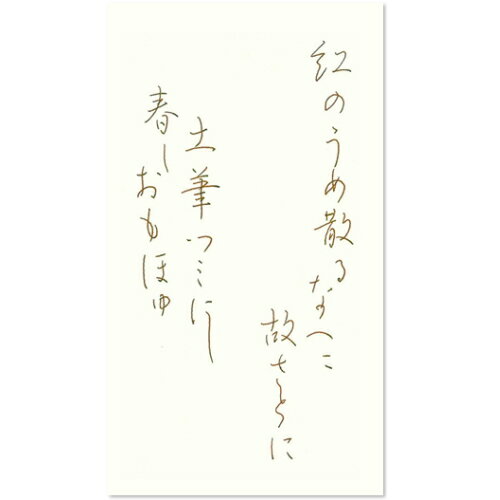 紅のうめ散るなへに
故さとに
土筆つミにし
春しおもほゆ